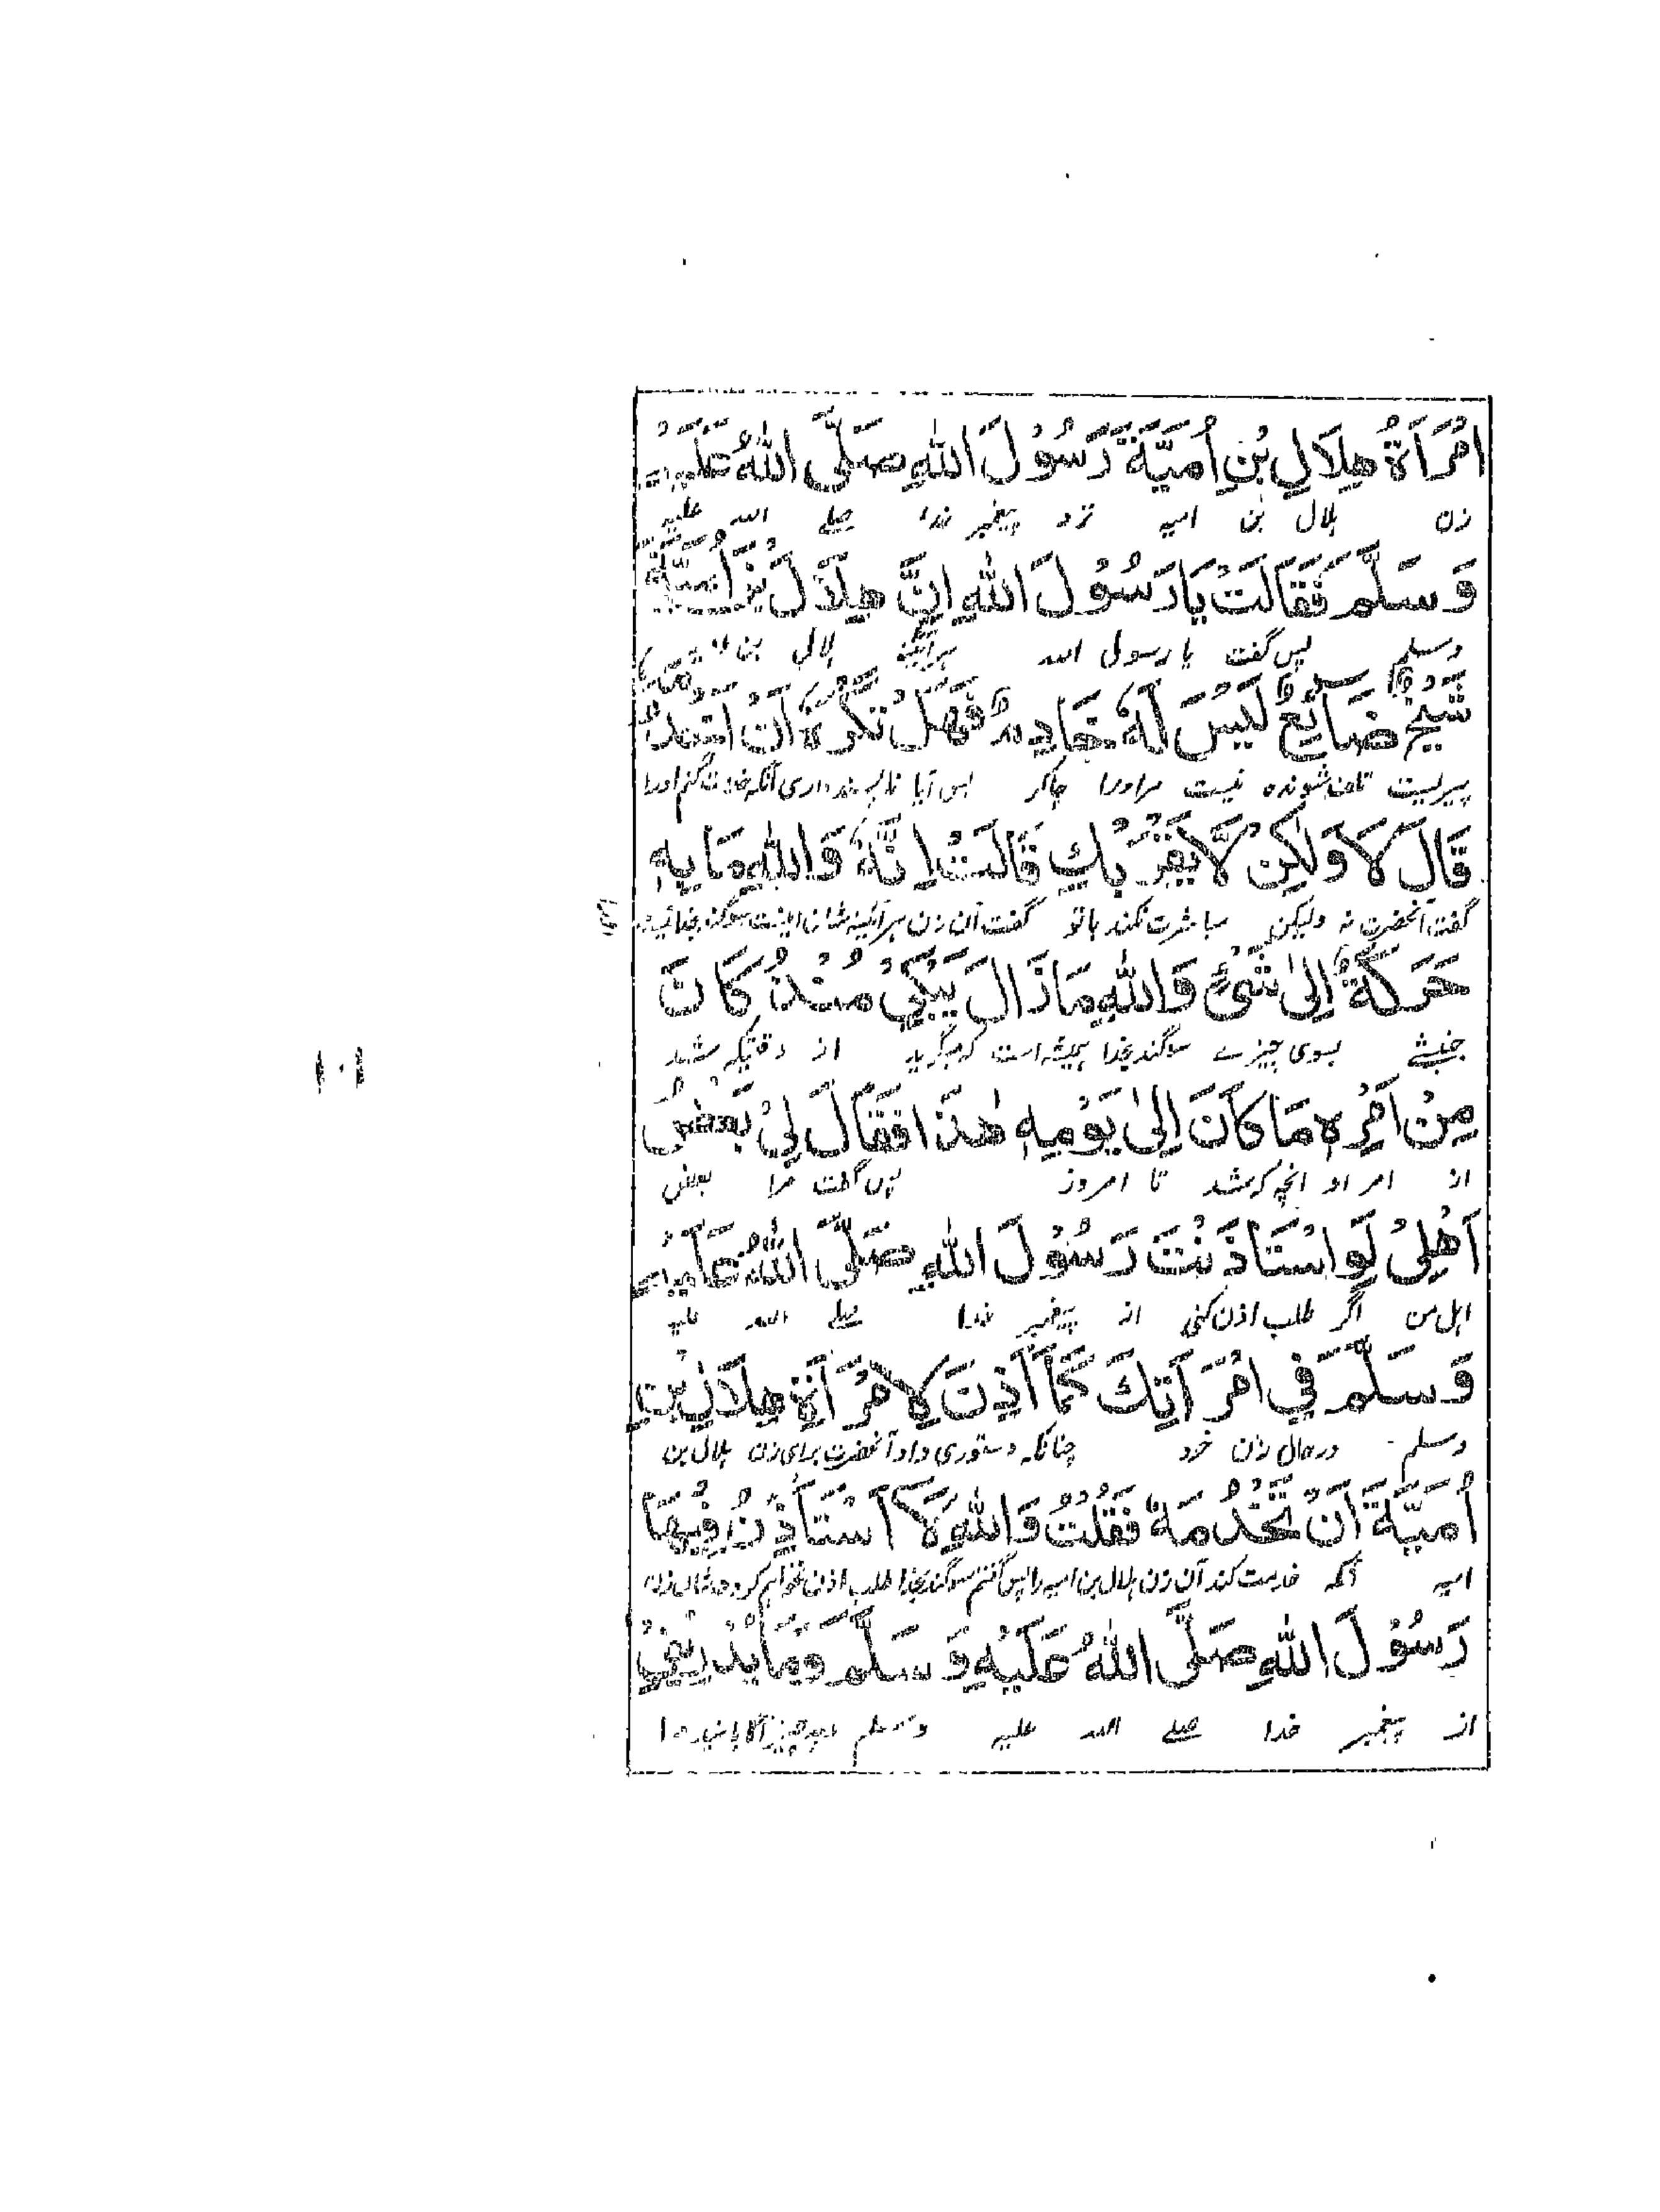 امْرَأَةُ هِلَالِ بْنِ أُمَيَّةَ رَسُوْلَ اللهِ صَلَّى اللهُ عَلَيْهِ
زن ہلال بن امیہ نزد پیغمبر خدا صلے اللہ علیہ
وَسَلَّمَ فَقَالَتْ يَا رَسُوْلَ اللهِ اِنَّ هِلَالَ بْنَ أُمَيَّةَ
وسلم پس گفت یا رسول اللہ ہرآئینہ ہلال بن
شَيْخٌ ضَائِعٌ لَيْسَ لَهُ خَادِمٌ فَهَلْ تَكْرَهُ اَنْ اَخْدُمَهُ
پیریست تلف شونده نیست مر اورا چاکر پس آیا ناپسند داری آنکه خدمت کنم اورا
قَالَ لَا وَلٰكِنْ لَّا يَقْرَبْكِ قَالَتْ اِنَّهُ وَاللهِ مَا بِهٖ
گفت آنحضرت نہ ولیکن مباشرت نکند باتو گفت آن زن ہرآئینہ شان اینست سوگند بخدا نیست
اورا
حَرَكَةٌ اِلٰى شَيْءٍ وَاللهِ مَا زَالَ يَبْكِيْ مُنْذُ كَانَ
جنبشے بسوی چیزے سوگند بخدا ہمیشہ است کہ میگرید از وقتیکہ شد
مِنْ اَمْرِهٖ مَا كَانَ اِلٰى يَوْمِهٖ هٰذَا فَقَالَ لِيْ بَعْضُ
از امر او انچہ کہ شد تا امروز پس گفت مرا بعض
اَهْلِيْ لَوِ اسْتَاْذَنْتَ رَسُوْلَ اللهِ صَلَّى اللهُ عَلَيْهِ
اہل من اگر طلب اذن کنی از پیغمبر خدا صلے اللہ علیہ
وَسَلَّمَ فِي امْرَأَتِكَ كَمَا اَذِنَ لِامْرَأَةِ هِلَالِ بْنِ
وسلم در حال زن خود چنانکہ دستوری داد آنحضرت برای زن ہلال بن
اُمَيَّةَ اَنْ تَخْدُمَهُ فَقُلْتُ وَاللهِ لَا اَسْتَأْذِنُ فِيْهَا
امیہ آنکہ خدمت کند آن زن ہلال بن امیہ را پس گفتم سوگند بخدا طلب اذن نخواہم کرد در شان زن
رَسُوْلَ اللهِ صَلَّى اللهُ عَلَيْهِ وَسَلَّمَ وَمَا يُدْرِيْنِيْ
از پیغمبر خدا صلے اللہ علیہ وسلم وچہ چیز آگاہانید مرا
۱۰۱